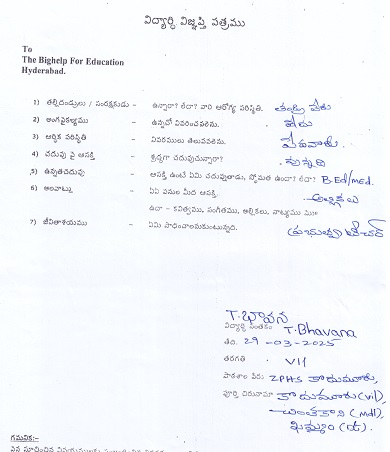 విద్యార్థి విజ్ఞప్తి పత్రము
To
The Bighelp For Education
Hyderabad.
1) తల్లిదండ్రులు / సంరక్షకుడు - ఉన్నారా? లేదా? వారి ఆరోగ్య పరిస్థితి. తండ్రి లేరు
2) అంగవైకల్యము - ఉన్నచో వివరించవలెను. లేదు
3) ఆర్థిక పరిస్థితి - వివరములు తెలుపవలెను. పేదవారు.
4) చదువు పై ఆసక్తి - శ్రద్ధగా చదువుచున్నారా? ఉన్నది
5) ఉన్నతచదువు - ఆసక్తి ఉంటే ఏమి చదువుతాడు, స్తోమత ఉందా? లేదా? B.Ed/med.
6) అలవాట్లు - ఏఏ పనుల మీద ఆసక్తి. అల్లికలు
ఉదా - కవిత్వము, సంగీతము, అల్లికలు, నాట్యము
7) జీవితాశయము - ఏమి సాధించాలనుకుంటున్నది. ప్రభుత్వ టీచర్
T. భావన
విద్యార్థి సంతకం T. Bhavana
తేది. 29-03-2025
తరగతి . VII
పాఠశాల పేరు ZPHS
పూర్తి చిరునామా (vil)
చింతకాని (mdl),
ఖమ్మం (
గమనిక:-